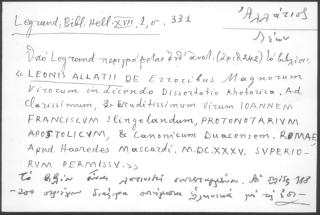 Legrand, Bibl. Hell. XVII, 1, σ. 331
Ἀλλάτιος
Λέων
Ὑπὸ Legrand περιγράφεται ὑπ' ἀριθ. 242 τὸ βιβλίον:
« LEONIS ALLATII DE Erroribus Magnorum
Virorum in dicendo Dissertatio Rhetorica. Ad
Clarissimum, & Eruditissimum Virum IOANNEM
FRANCISCVM Slingelandum, PROTONOTARIVM
APOSTOLICVM, & Canonicum Duacensem. ROMAE,
Apud Haeredes Mascardi. M.DC.XXXV. SVPERIO-
RVM PERMISSV.»
Τὸ βιβλίον εἶναι λατινιστὶ συντεταγμένον.